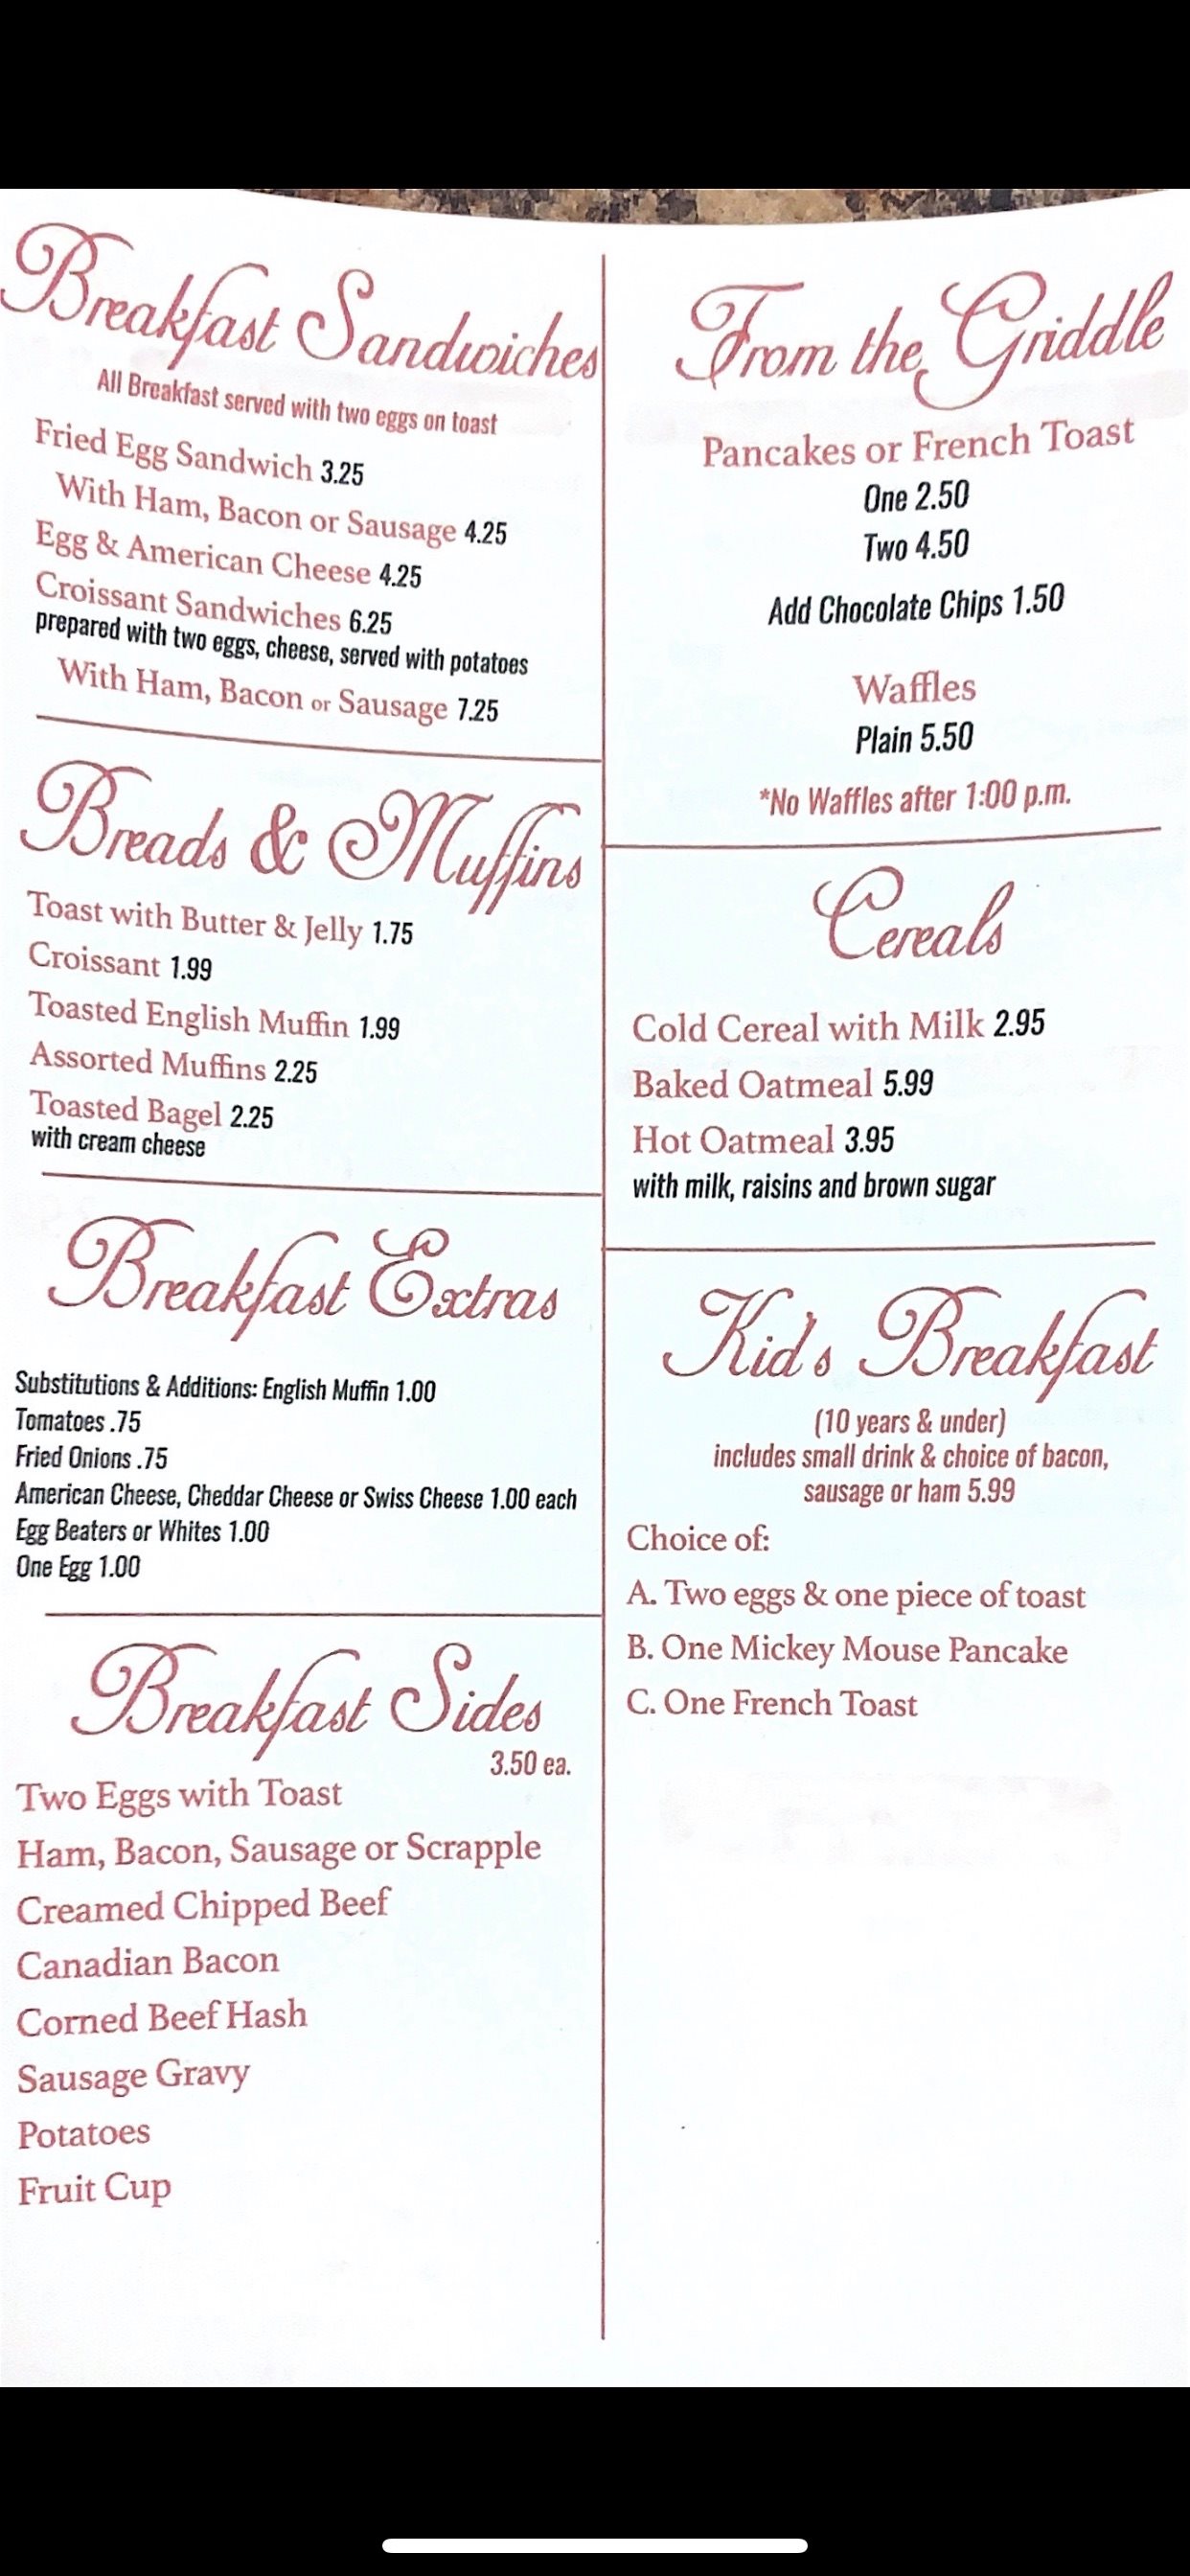 Breakfast Sandwiches
All Breakfast served with two eggs on toast
Fried Egg Sandwich 3.25
With Ham, Bacon or Sausage 4.25
Egg & American Cheese 4.25
Croissant Sandwiches 6.25
prepared with two eggs, cheese, served with potatoes
With Ham, Bacon or Sausage 7.25
Breads & Muffins
Toast with Butter & Jelly 1.75
Croissant 1.99
Toasted English Muffin 1.99
Assorted Muffins 2.25
Toasted Bagel 2.25
with cream cheese
Breakfast Extras
Substitutions & Additions: English Muffin 1.00
Tomatoes .75
Fried Onions .75
American Cheese, Cheddar Cheese or Swiss Cheese 1.00 each
Egg Beaters or Whites 1.00
One Egg 1.00
Breakfast Sides
3.50 ea.
Two Eggs with Toast
Ham, Bacon, Sausage or Scrapple
Creamed Chipped Beef
Canadian Bacon
Corned Beef Hash
Sausage Gravy
Potatoes
Fruit Cup
From the Griddle
Pancakes or French Toast
One 2.50
Two 4.50
Add Chocolate Chips 1.50
Waffles
Plain 5.50
*No Waffles after 1:00 p.m.
Cereals
Cold Cereal with Milk 2.95
Baked Oatmeal 5.99
Hot Oatmeal 3.95
with milk, raisins and brown sugar
Kid's Breakfast
(10 years & under)
includes small drink & choice of bacon,
sausage or ham 5.99
Choice of:
A. Two eggs & one piece of toast
B. One Mickey Mouse Pancake
C. One French Toast